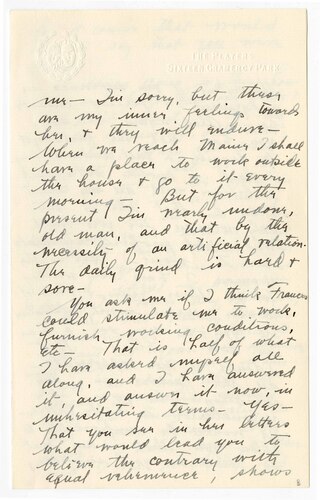 THE PLAYERS
SIXTEEN GRAMERCY PARK
me — I'm sorry, but these
are my inner feelings towards
her, & they will endure —
When we reach Maine I shall
have a place to work outside
the house & go to it every
morning — But for the
present I'm nearly undone,
old man, and that by the
necessity of an artificial relation.
The daily grind is hard &
sore —
You ask me if I think Frances
could stimulate me to work,
furnish working conditions,
etc — That is half of what
I have asked myself all
along, and I have answered
it, and answer it now, in
unhesitating terms — Yes —
That you see in her letters
what would lead you to
believe the contrary with
equal vehemence, shows